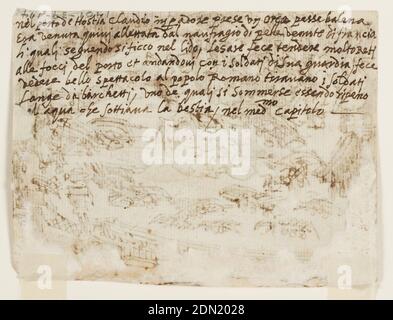 nel porto de Hostia Claudio Imperadore prese un orca pesse balena
Era venuta quivi allettata dal naufragio di pelle venute di francia
li quali seguendo si ficco nel lido, Cesare fece tendere molte reti
alle focci del porto et andandovi con i soldati di sua guardia fece
vedere bello spettacolo al popolo Romano tiravano i soldati
Lançe da barchetti, uno de quali si sommerse essendo ripieno
d'acqua che soffiava la bestia / nel med.mo Capitolo
alamy
www.alamy.com
2DN2028